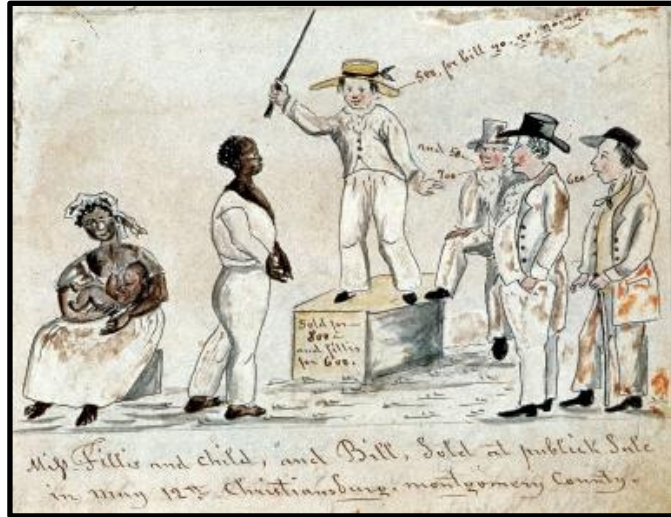 500, for bill go, go, now
and 50
700
600
Sold for
800
and fillis
for 600.
Miss Fillis and child, and Bill, Sold at publick Sale
in May 12th Christiansburg. montgomery County.